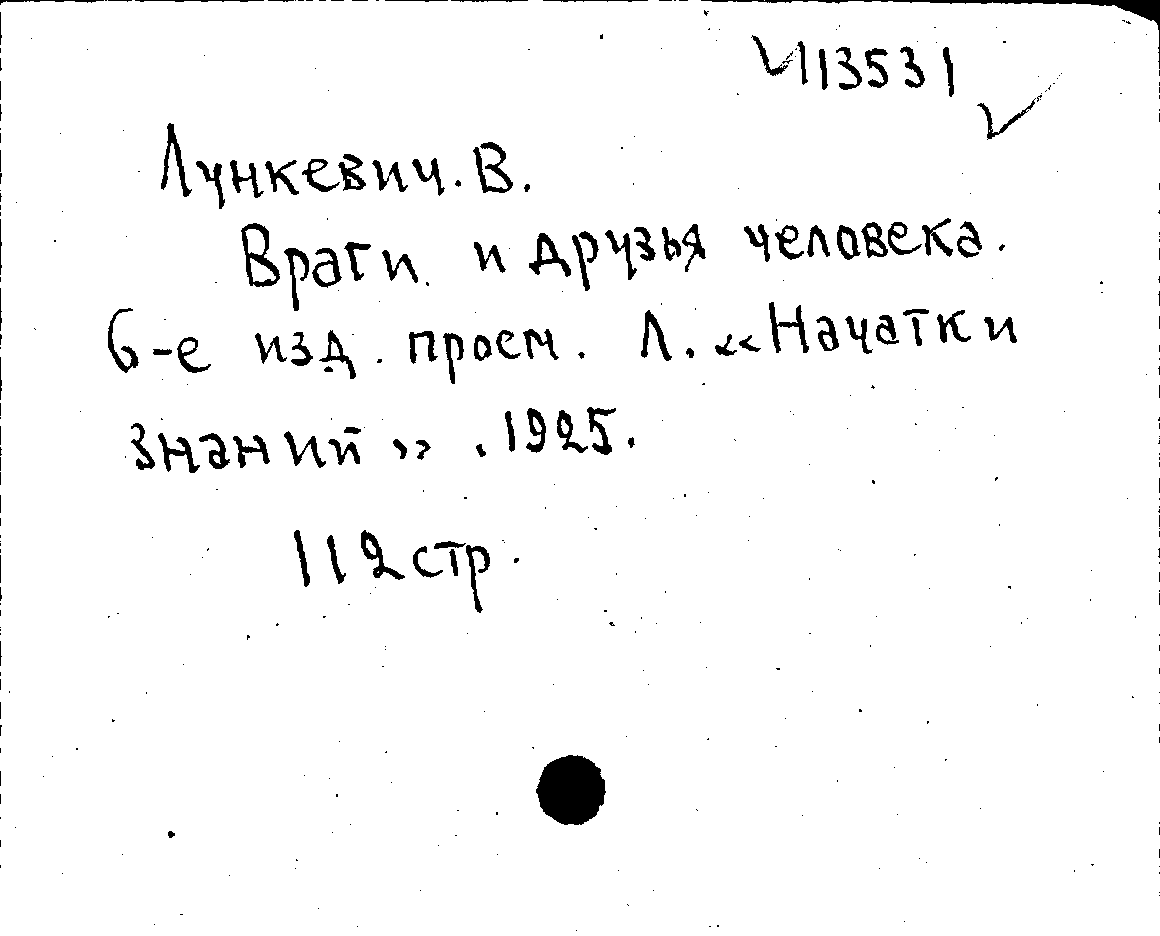 И13531
Лункевич. В.
Враги и друзья человека.
6-е изд. просм. Л. «Начатки
знаний». 1925.
112 стр.